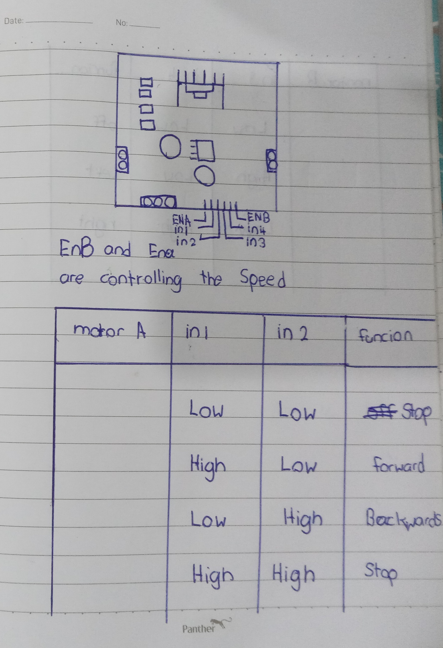 Date:
No:
ENA
ENB
in1
in4
in2
in3
EnB and Ena
are controlling the Speed
motor A in1 in2 funcion
Low Low Stop
High Low forward
Low High Backwards
High High Stop
Panther